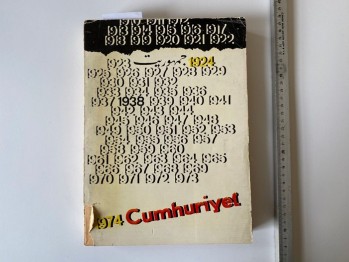 1910 1911 1912
1913 1914 1915 1916 1917
1918 1919 1920 1921 1922
1923 1924
1925 1926 1927 1928 1929
1930 1931 1932
1933 1934 1935 1936
1937 1938 1939 1940 1941
1942 1943 1944
1945 1946 1947 1948
1949 1950 1951 1952 1953
1954 1955 1956 1957
1958 1959 1960
1961 1962 1963 1964 1965
1966 1967 1968 1969
1970 1971 1972 1973
1974 Cumhuriyet